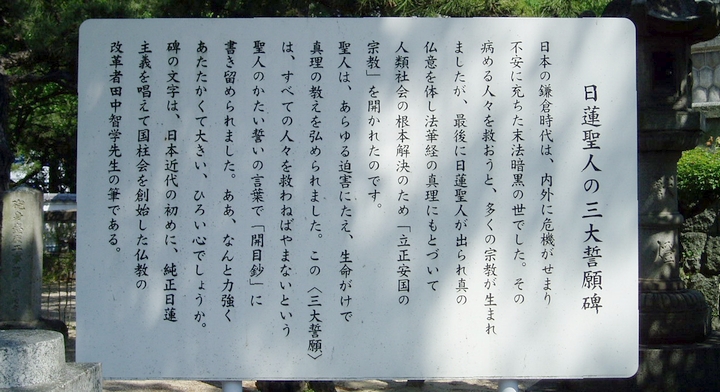 日蓮聖人の三大誓願碑
日本の鎌倉時代は、内外に危機がせまり
不安に充ちた末法暗黒の世でした。その
病める人々を救おうと、多くの宗教が生まれ
ましたが、最後に日蓮聖人が出られ真の
仏意を体し法華経の真理にもとづいて
人類社会の根本解決のため「立正安国の
宗教」を開かれたのです。
聖人は、あらゆる迫害にたえ、生命がけで
真理の教えを弘められました。この〈三大誓願〉
は、すべての人々を救わねばやまないという
聖人のかたい誓いの言葉で「開目鈔」に
書き留められました。ああ、なんと力強く
あたたかくて大きい、ひろい心でしょうか。
碑の文字は、日本近代の初めに、純正日蓮
主義を唱えて国柱会を創始した仏教の
改革者田中智学先生の筆である。